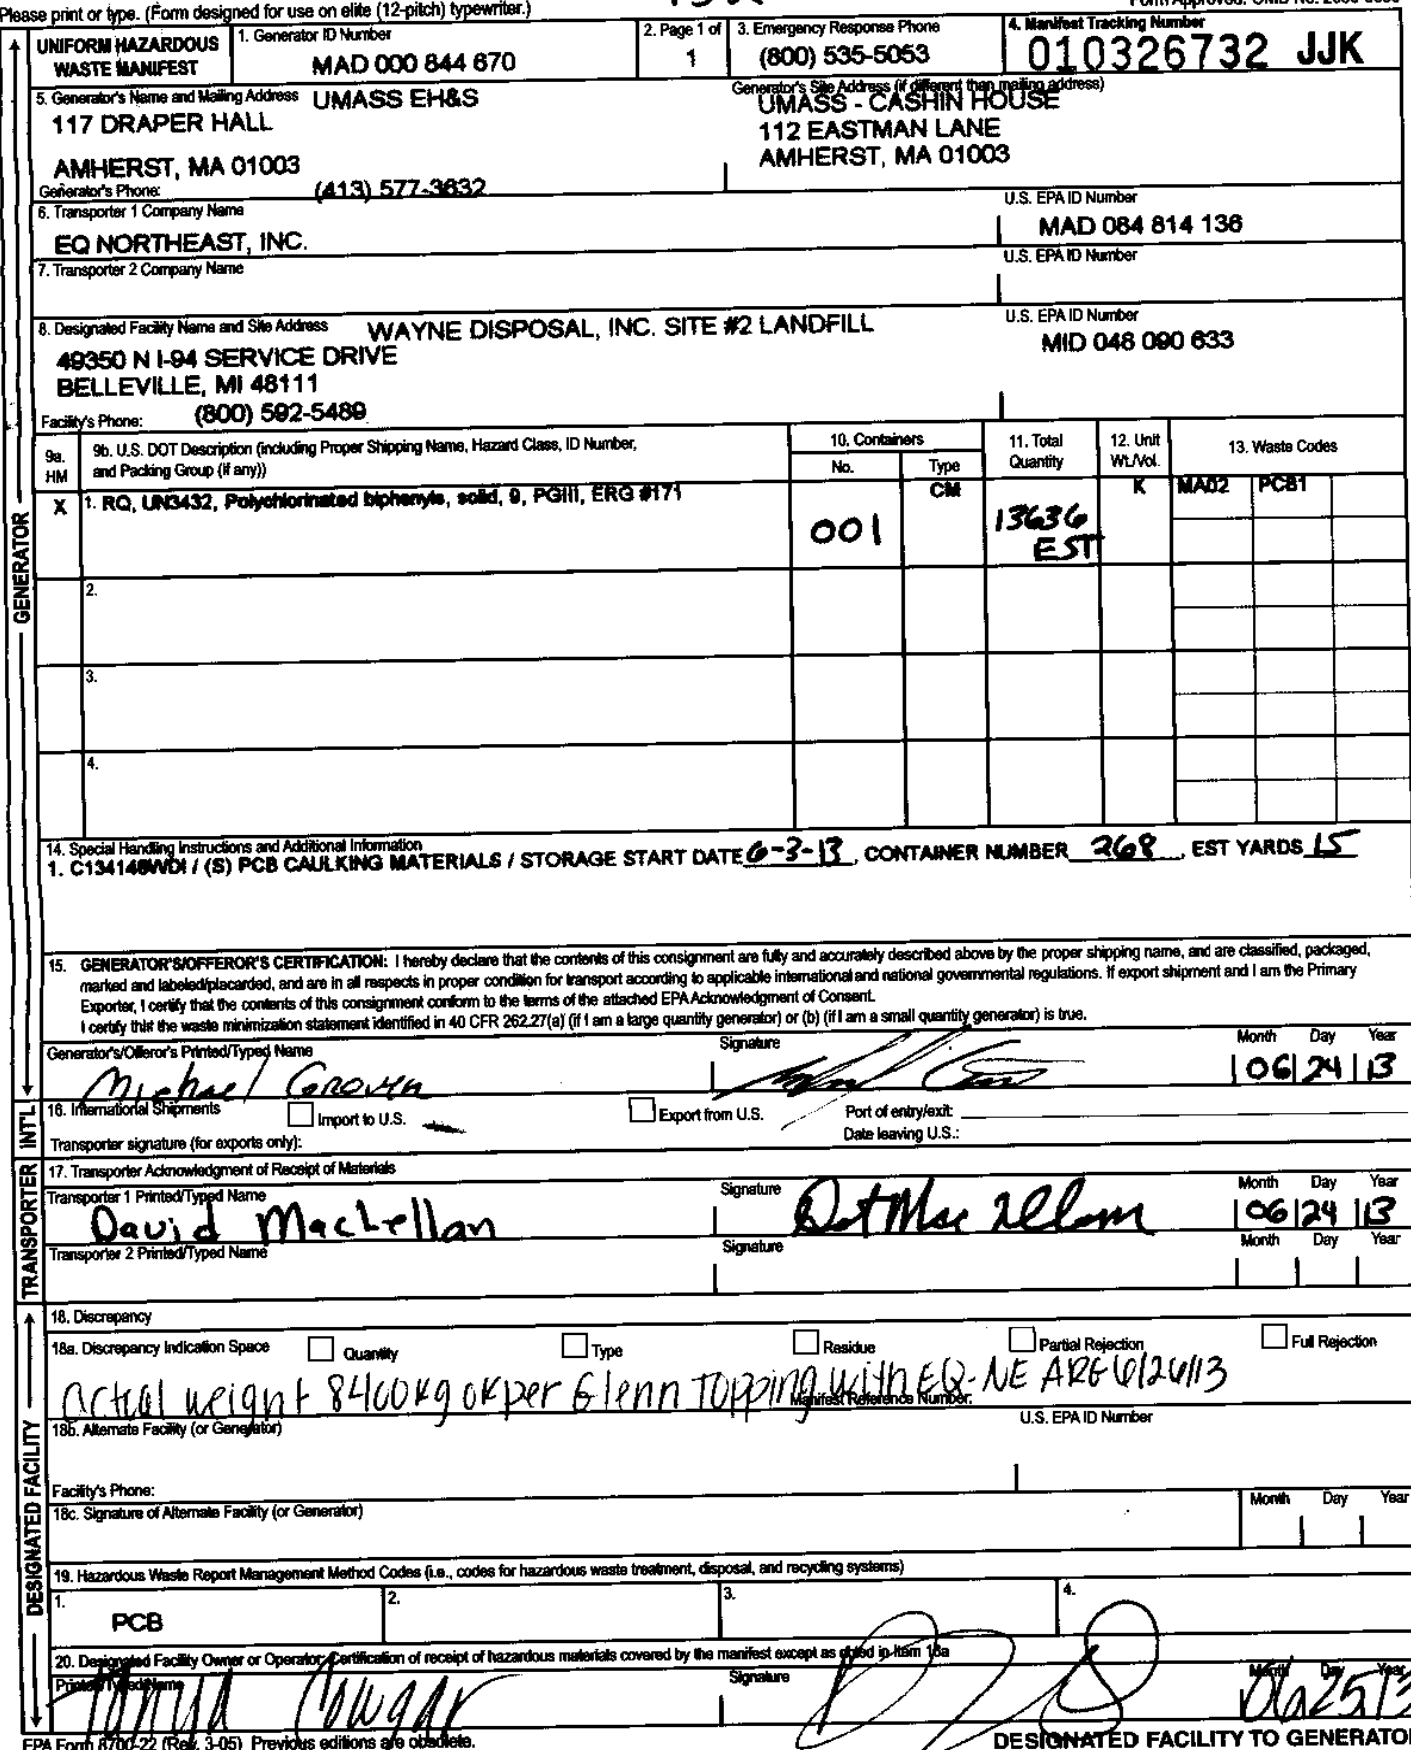 Please print or type. (Form designed for use on elite (12-pitch) typewriter.)
UNIFORM HAZARDOUS WASTE MANIFEST
1. Generator ID Number
MAD 000 844 670
2. Page 1 of
1
3. Emergency Response Phone
(800) 535-5053
4. Manifest Tracking Number
010326732 JJK
5. Generator's Name and Mailing Address UMASS EH&S
117 DRAPER HALL
AMHERST, MA 01003
Generator's Phone: (413) 577-3632
Generator's Site Address (if different than mailing address)
UMASS - CASHIN HOUSE
112 EASTMAN LANE
AMHERST, MA 01003
6. Transporter 1 Company Name
EQ NORTHEAST, INC.
U.S. EPA ID Number
MAD 084 814 136
7. Transporter 2 Company Name
U.S. EPA ID Number
8. Designated Facility Name and Site Address WAYNE DISPOSAL, INC. SITE #2 LANDFILL
49350 N I-94 SERVICE DRIVE
BELLEVILLE, MI 48111
Facility's Phone: (800) 592-5489
U.S. EPA ID Number
MID 048 090 633
9a. HM
9b. U.S. DOT Description (including Proper Shipping Name, Hazard Class, ID Number, and Packing Group (if any))
10. Containers
No.
Type
11. Total Quantity
12. Unit Wt./Vol.
13. Waste Codes
X
1. RQ, UN3432, Polychlorinated biphenyls, solid, 9, PGIII, ERG #171
001
CM
13636 EST
K
MA02
PCB1
2.
3.
4.
14. Special Handling Instructions and Additional Information
1. C134146WDI / (S) PCB CAULKING MATERIALS / STORAGE START DATE 6-3-13, CONTAINER NUMBER 268, EST YARDS 15
15. GENERATOR'S/OFFEROR'S CERTIFICATION: I hereby declare that the contents of this consignment are fully and accurately described above by the proper shipping name, and are classified, packaged,
marked and labeled/placarded, and are in all respects in proper condition for transport according to applicable international and national governmental regulations. If export shipment and I am the Primary
Exporter, I certify that the contents of this consignment conform to the terms of the attached EPA Acknowledgment of Consent.
I certify that the waste minimization statement identified in 40 CFR 262.27(a) (if I am a large quantity generator) or (b) (if I am a small quantity generator) is true.
Generator's/Offeror's Printed/Typed Name
Signature
Month Day Year
Michael Grover
06 24 13
16. International Shipments
Import to U.S.
Export from U.S.
Port of entry/exit:
Transporter signature (for exports only):
Date leaving U.S.:
17. Transporter Acknowledgment of Receipt of Materials
Transporter 1 Printed/Typed Name
Signature
Month Day Year
David MacLellan
06 24 13
Transporter 2 Printed/Typed Name
Signature
Month Day Year
18. Discrepancy
18a. Discrepancy Indication Space
Quantity
Type
Residue
Partial Rejection
Full Rejection
actual weight 8400kg ok per Glenn Topping with EQ-NE ARG 6/26/13
Manifest Reference Number:
18b. Alternate Facility (or Generator)
U.S. EPA ID Number
Facility's Phone:
18c. Signature of Alternate Facility (or Generator)
Month Day Year
19. Hazardous Waste Report Management Method Codes (i.e., codes for hazardous waste treatment, disposal, and recycling systems)
1.
PCB
2.
3.
4.
20. Designated Facility Owner or Operator: Certification of receipt of hazardous materials covered by the manifest except as noted in Item 18a
Printed/Typed Name
Signature
Month Day Year
Tanya
06 25 13
EPA Form 8700-22 (Rev. 3-05) Previous editions are obsolete.
DESIGNATED FACILITY TO GENERATOR
GENERATOR
INT'L
TRANSPORTER
DESIGNATED FACILITY